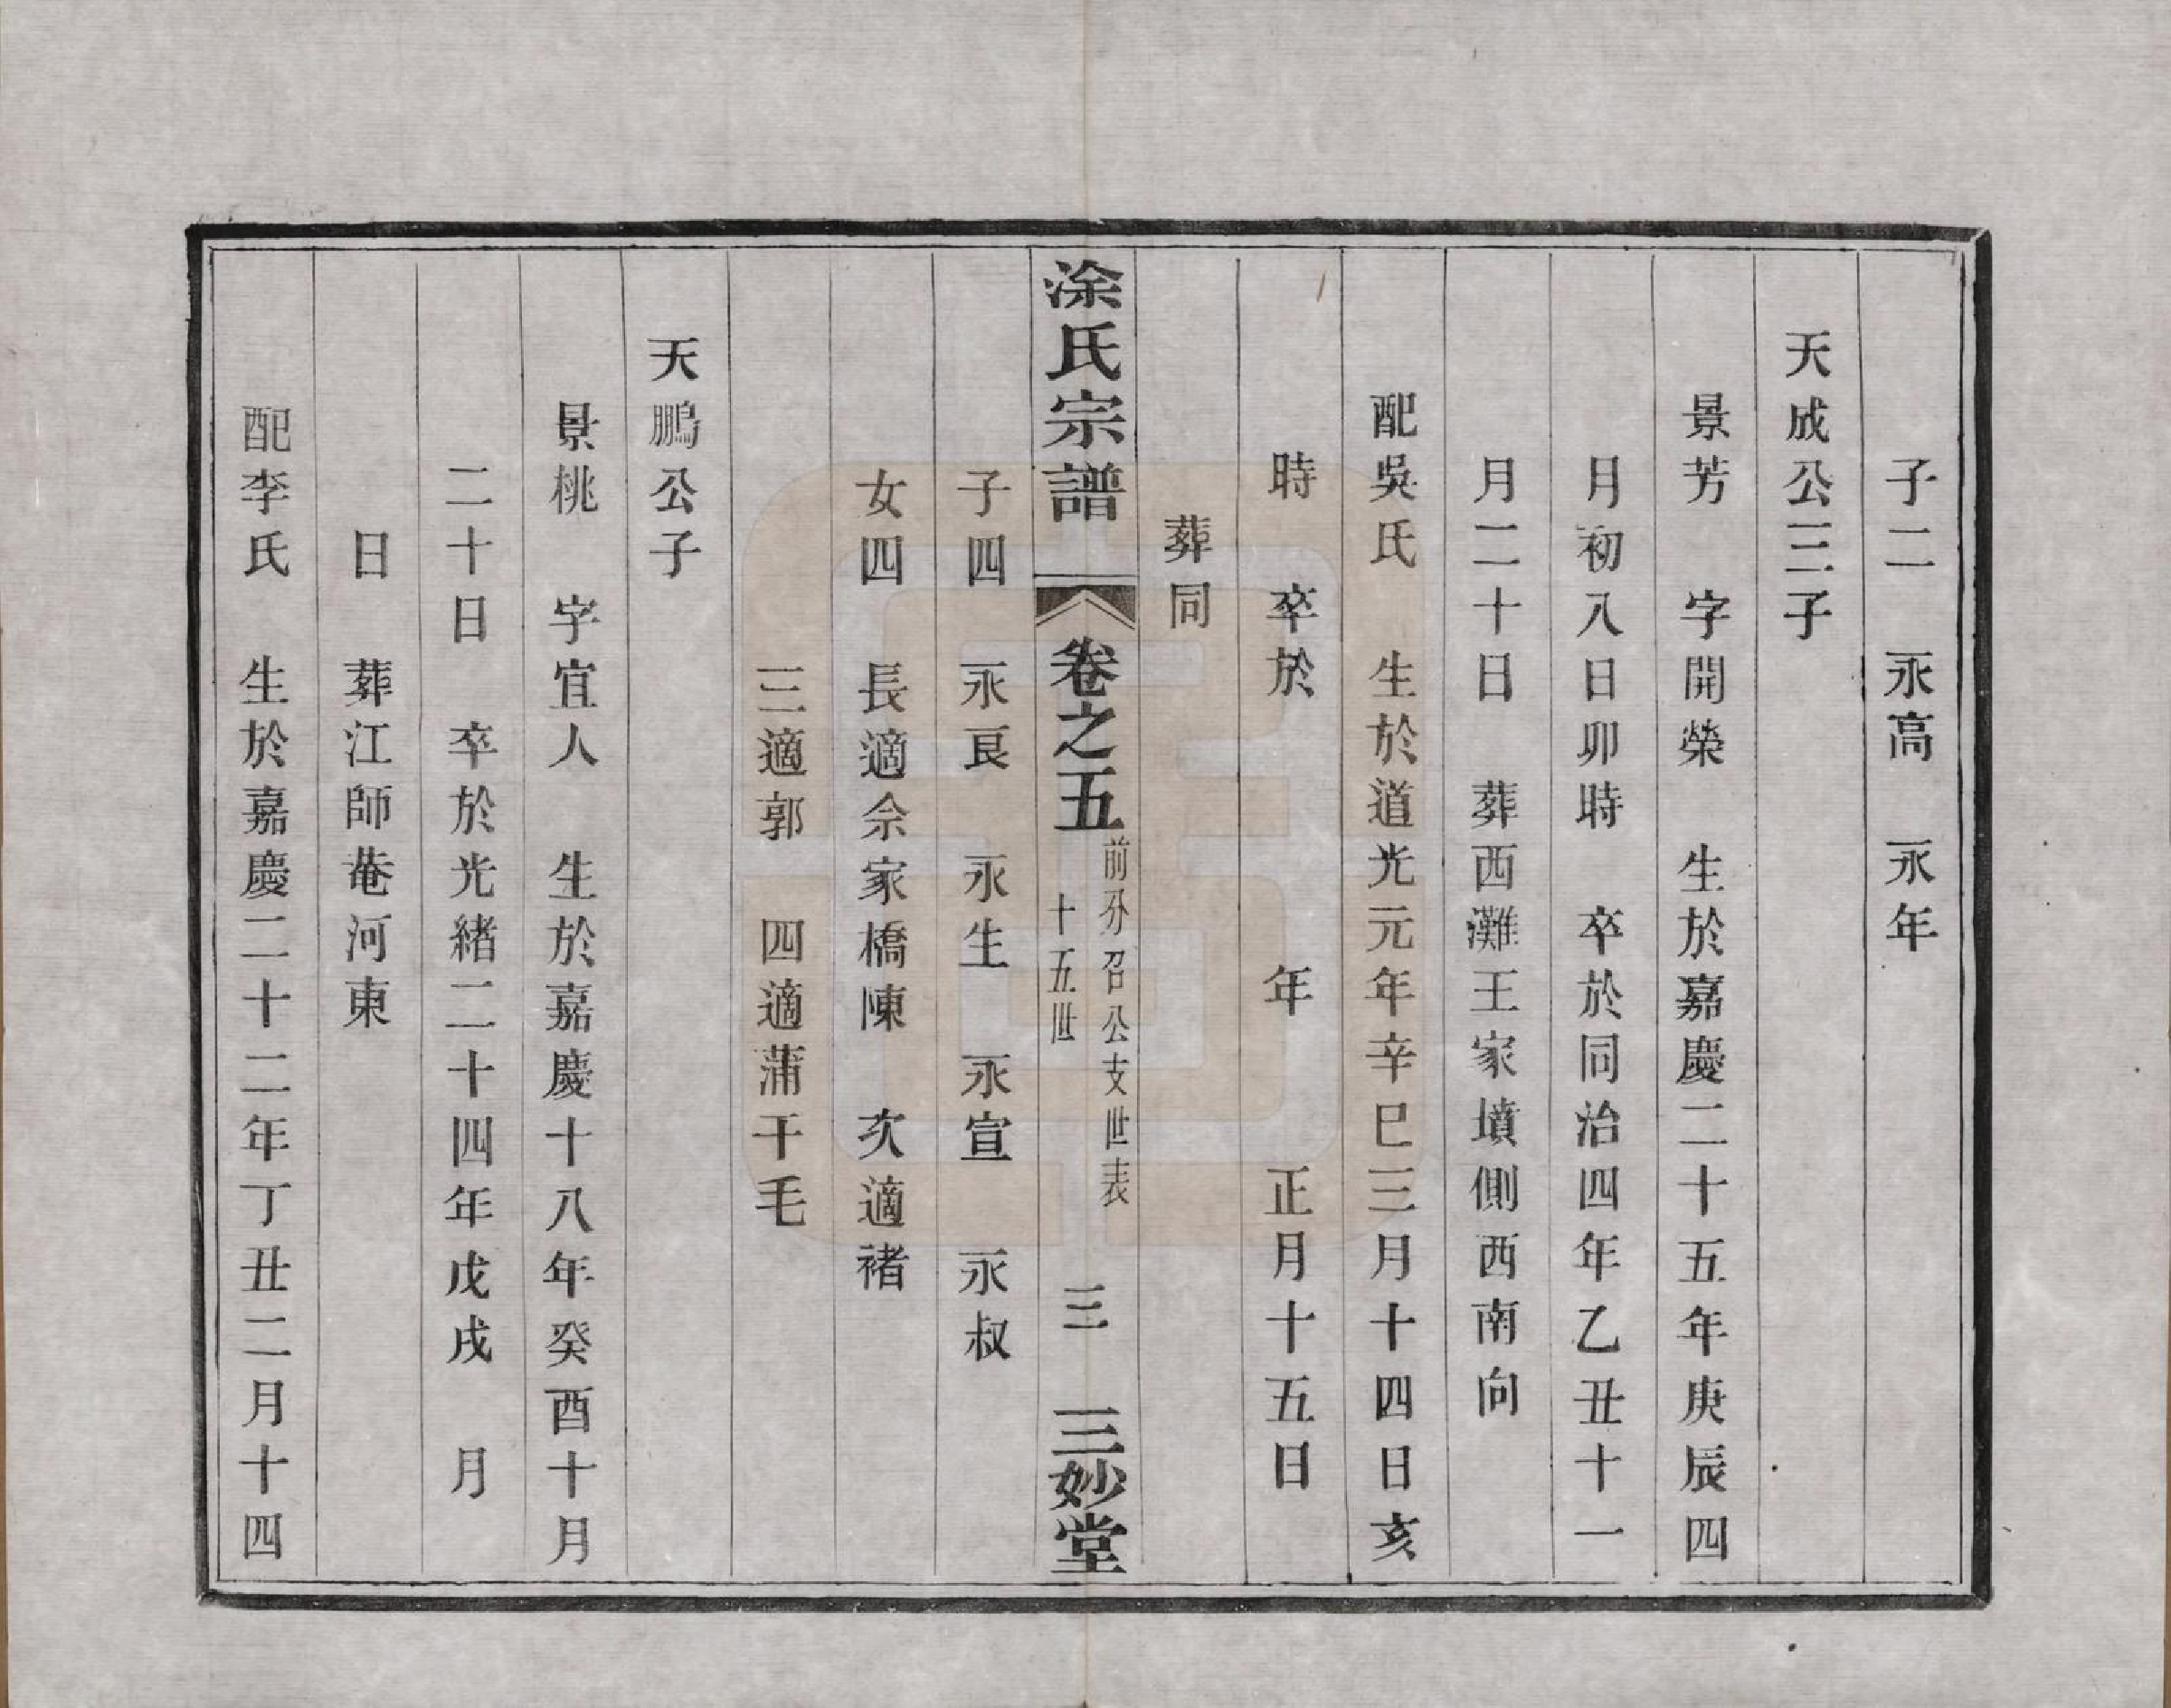 子二　永高　永年
天成公三子
景芳　字開榮　生於嘉慶二十五年庚辰四
月初八日卯時　卒於同治四年乙丑十一
月二十日　葬西灘王家墳側西南向
配吳氏　生於道光元年辛巳三月十四日亥
時　卒於　年　正月十五日
葬同
涂氏宗譜　卷之五　前分召公支世表　十五世　三　三妙堂
子四　永良　永生　永宣　永叔
女四　長適佘家橋陳　次適褚
三適郭　四適蒲干毛
天鵬公子
景桃　字宜人　生於嘉慶十八年癸酉十月
二十日　卒於光緒二十四年戊戌　月
日　葬江師菴河東
配李氏　生於嘉慶二十二年丁丑二月十四